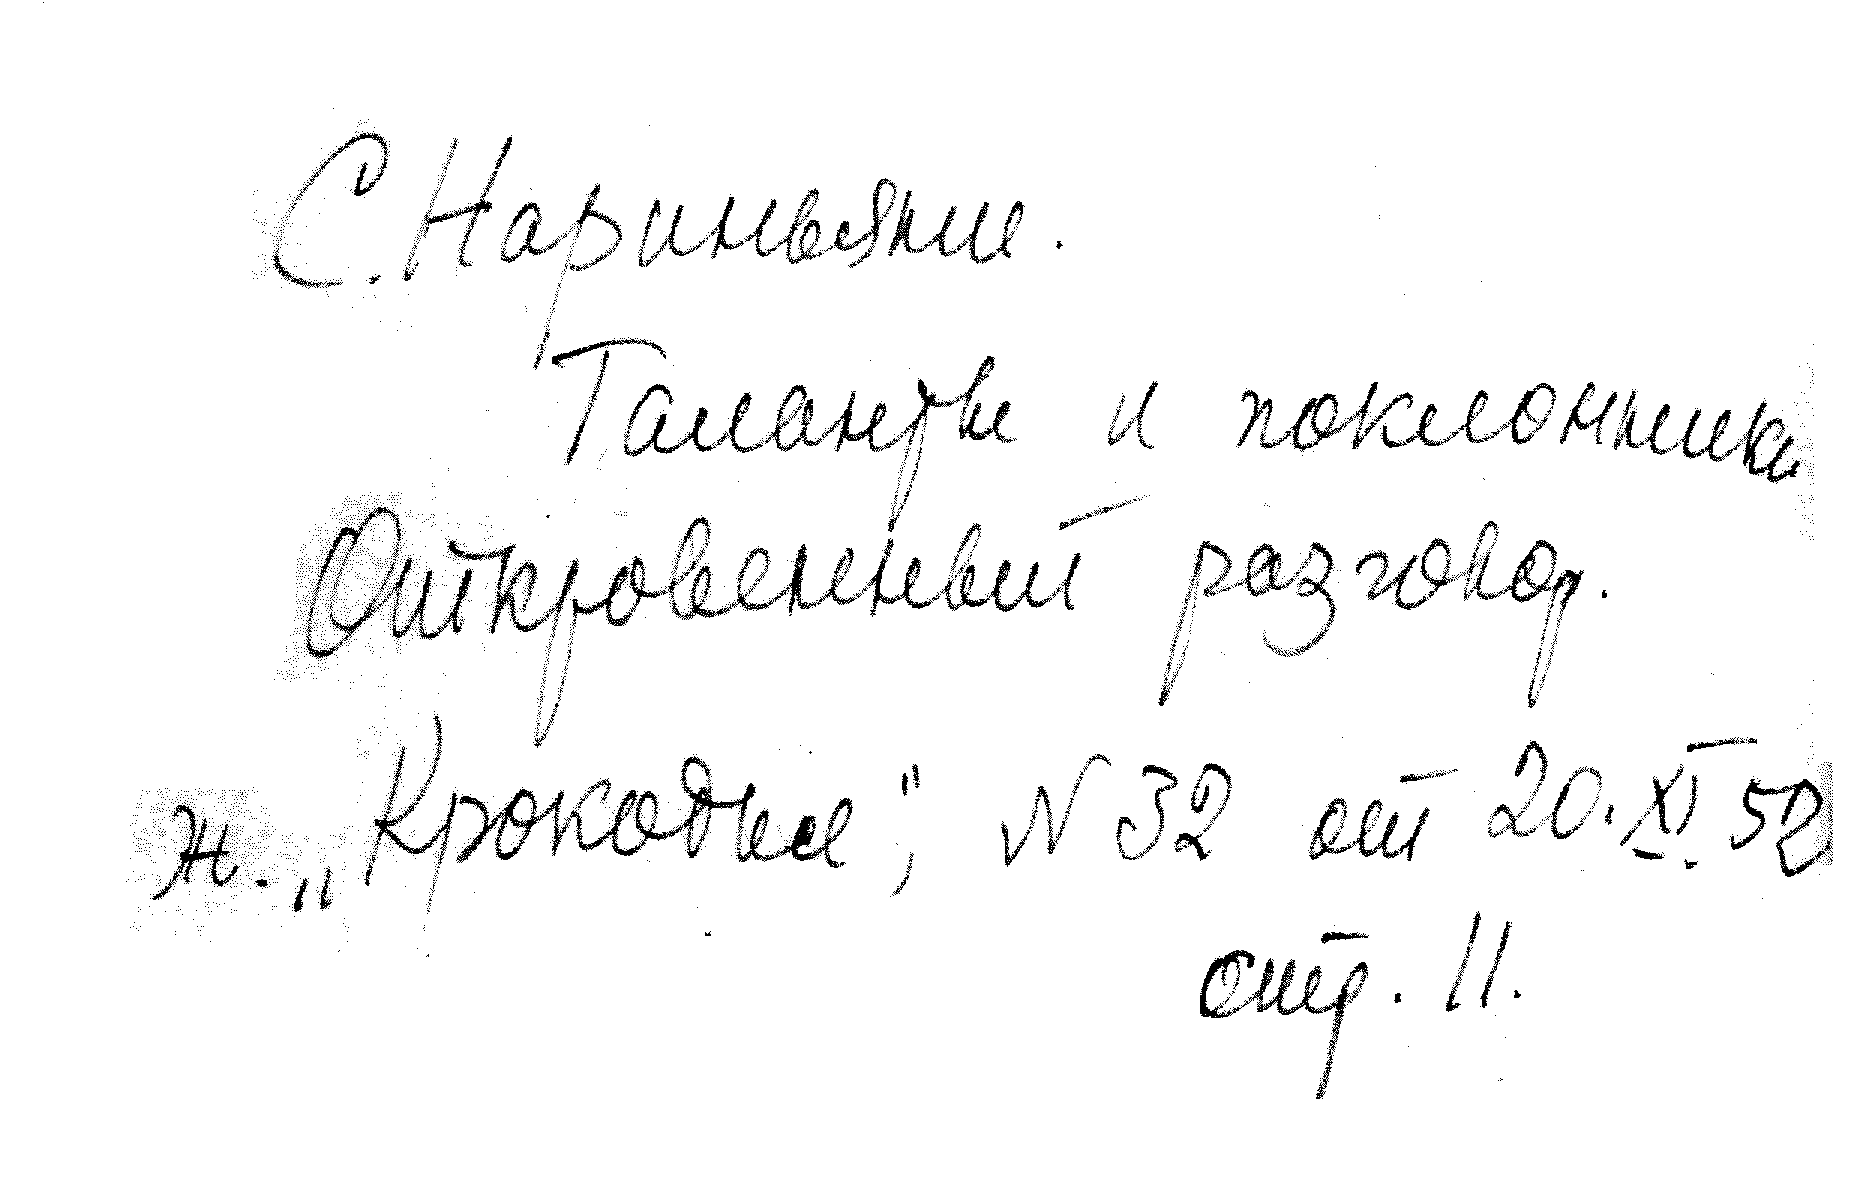 С. Нариньяни.
Таланты и поклонники
Откровенный разговор.
ж. „Крокодил", N 32 от 20.XI.52
стр. 11.